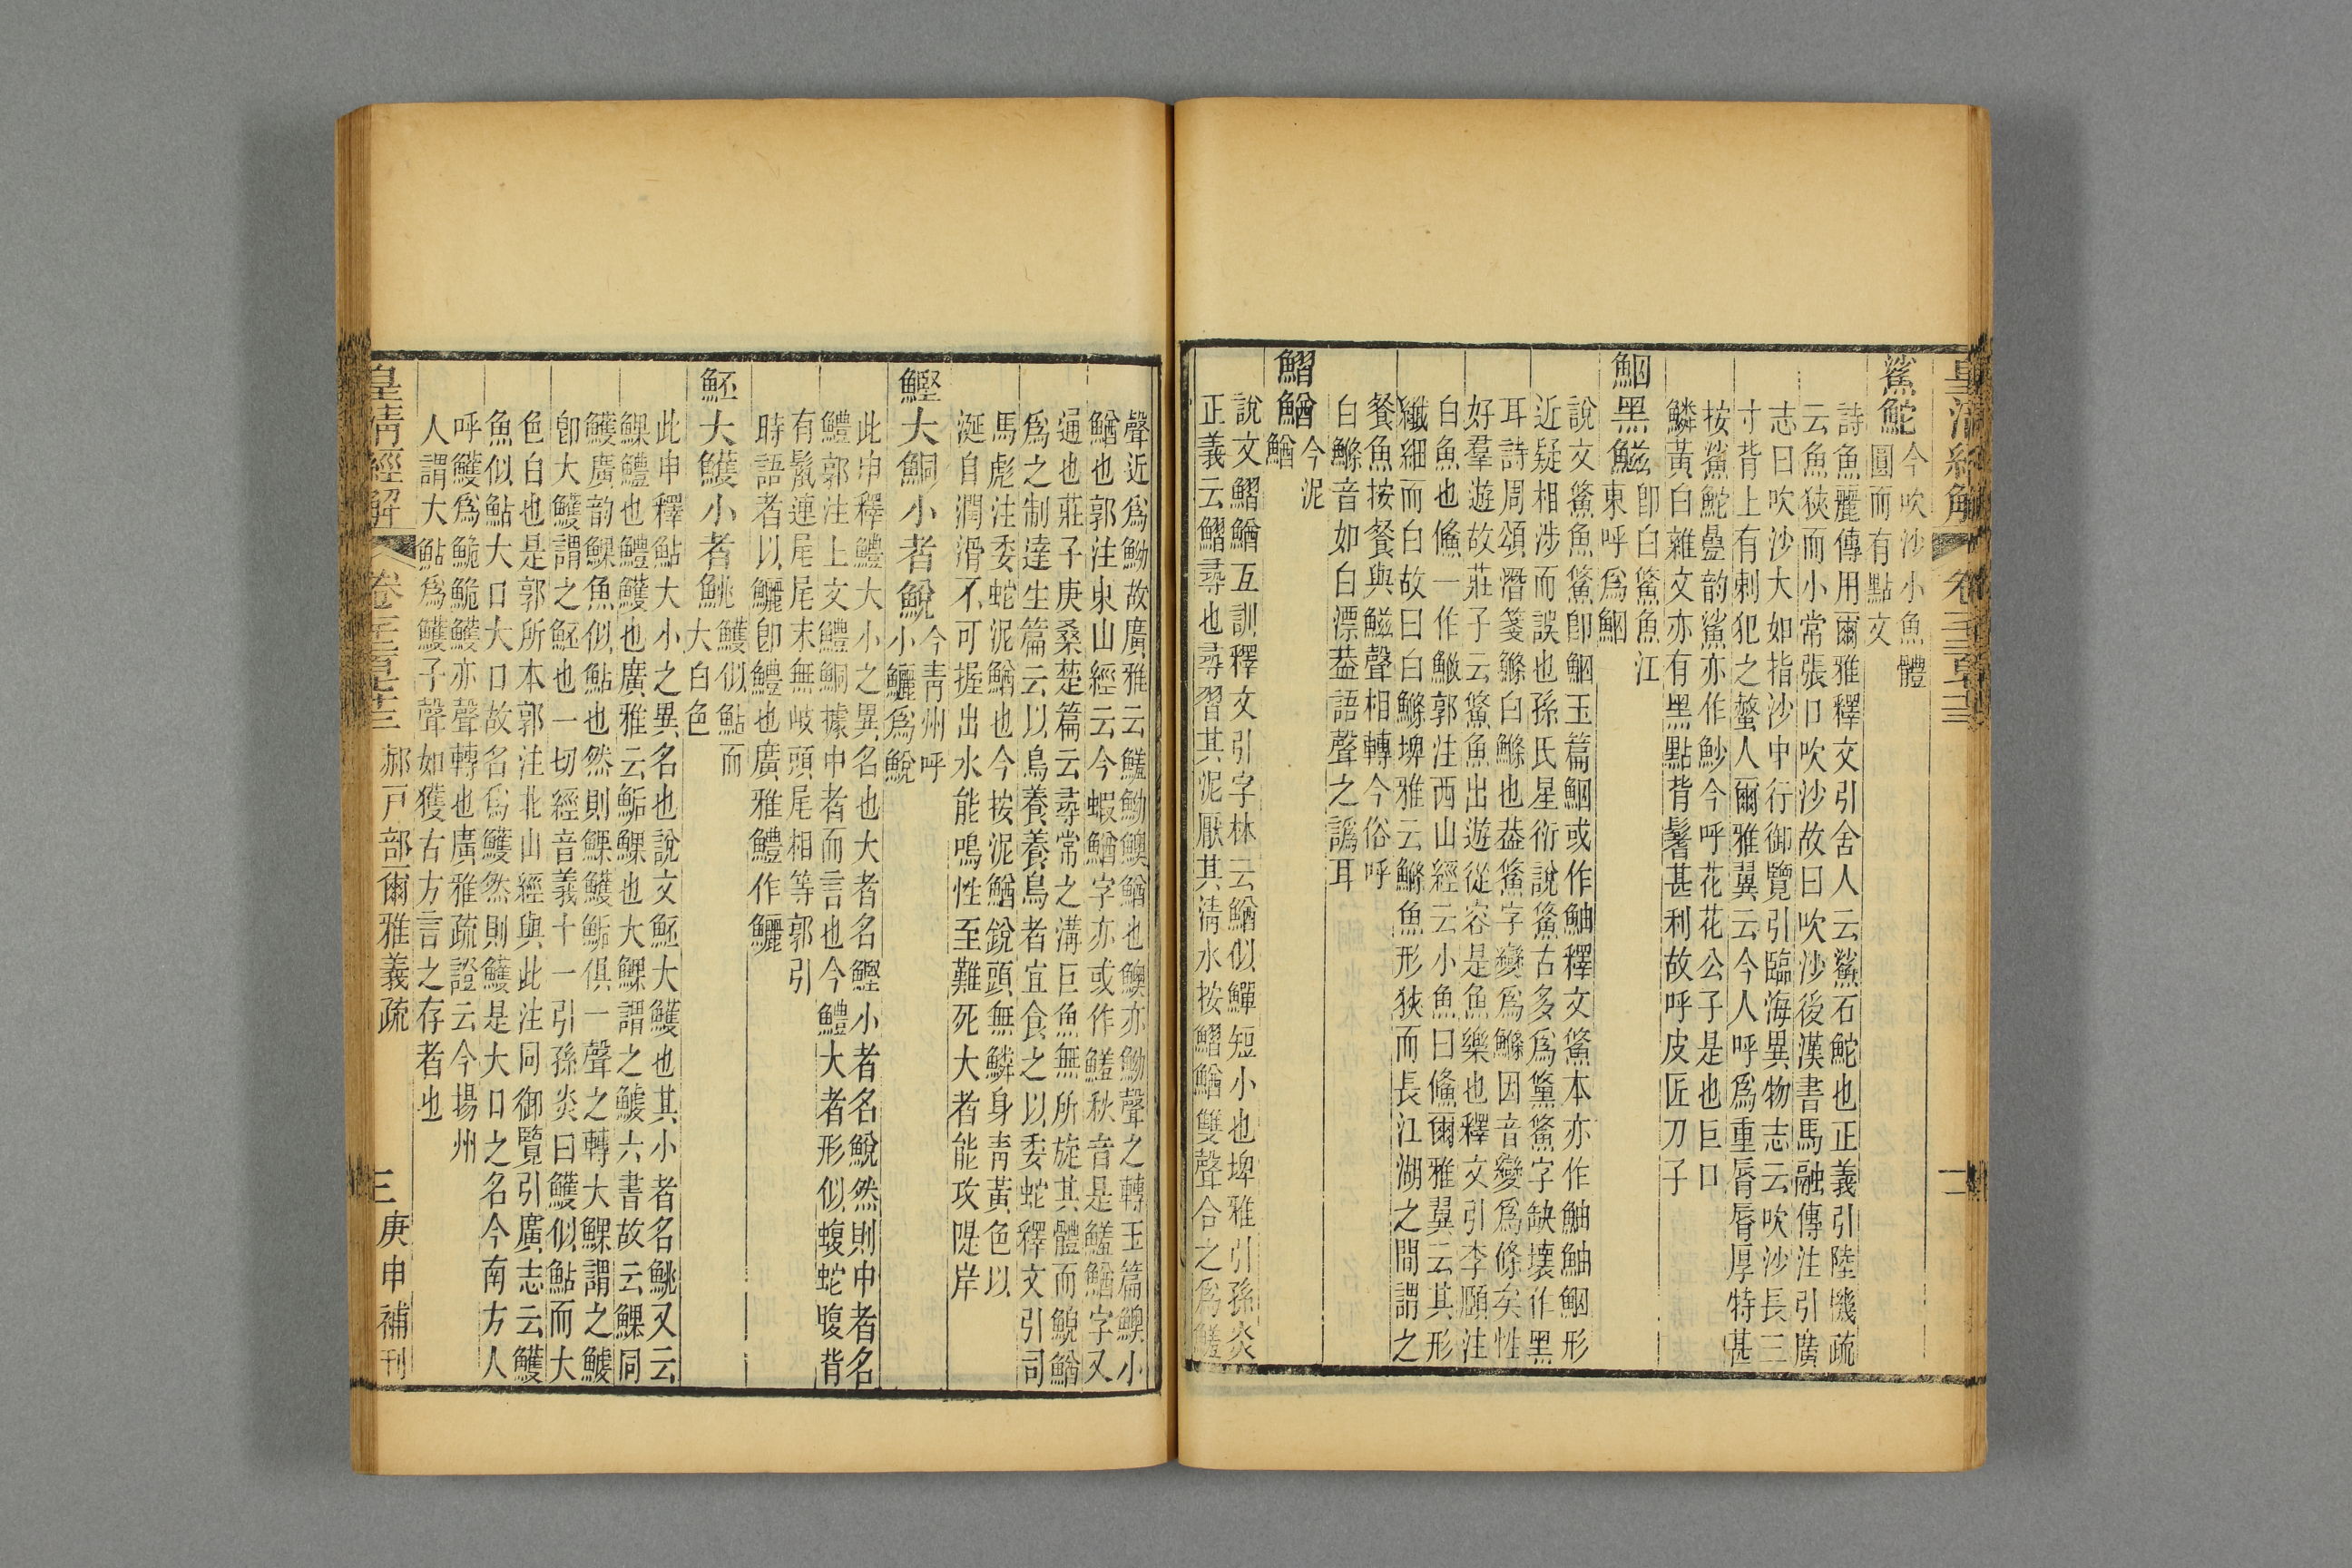 鯊鮀今吹沙小魚體
圓而有點文
詩魚麗傳用爾雅釋文引舍人云鯊石鮀也正義引陸機疏
云魚狹而小常張口吹沙故曰吹沙後漢書馬融傳注引廣
志曰吹沙大如指沙中行御覽引臨海異物志云吹沙長三
寸背上有刺犯之螫人爾雅翼云今人呼為重脣脣厚特甚
按鯊鮀疊韵鯊亦作魦今呼花花公子是也巨口
鱗黃白雜文亦有黑點背鬐甚利故呼皮匠刀子
鮂黑鰦卽白鯈魚江
東呼為鮂
說文鯈魚鯈卽鮂玉篇鮂或作鮋釋文鯈本亦作鮋鮋鮂形
近疑相涉而誤也孫氏星衍說鯈古多為䱀鯈字缺壞作黑
耳詩周頌潛箋鰷白鰷也葢鯈字變為鰷因音變為條矣性
好羣遊故莊子云鯈魚出遊從容是魚樂也釋文引李頤注
白魚也鯈一作𩼝郭注西山經云小魚曰鯈爾雅翼云其形
纖細而白故曰白鰷埤雅云鰷魚形狹而長江湖之間謂之
餐魚按餐與鰦聲相轉今俗呼
白鰷音如白漂葢語聲之譌耳
鰼鰌今泥
鰌
說文鰼鰌互訓釋文引字林云鰌似鱓短小也埤雅引孫炎
正義云鰼尋也尋習其泥厭其清水按鰼鰌雙聲合之為鱃
聲近為䱂故廣雅云鱃䱂鰌也亦䱂聲之轉玉篇小
鰌也郭注東山經云今蝦鰌字亦或作鱃秋音是鱃鰌字又
通也莊子庚桑楚篇云尋常之溝巨魚無所旋其體而鯢鰌
為之制達生篇云以鳥養養鳥者宜食之以委蛇釋文引司
馬彪注委蛇泥鰌也今按泥鰌銳頭無鱗身青黃色以
涎自潤滑不可握出水能鳴性至難死大者能攻隄岸
鰹大鮦小者鮵今青州呼
小鱺為鮵
此申釋鱧大小之異名也大者名鰹小者名鮵然則中者名
鱧郭注上文鱧鮦據中者而言也今鱧大者形似蝮蛇腹背
有鬛連尾尾末無岐頭尾相等郭引
時語者以鱺卽鱧也廣雅鱧作鱺
魾大鱯小者鮡鱯似鮎而
大白色
此申釋鮎大小之異名也說文魾大鱯也其小者名鮡又云
鱧也鱧鱯也廣雅云也大謂之鯪六書故云同
鱯廣韵魚似鮎也然則鱯俱一聲之轉大謂之
卽大鱯謂之魾也一切經音義十一引孫炎曰鱯似鮎而大
色白也是郭所本郭注北山經與此注同御覽引廣志云鱯
魚似鮎大口大口故名為鱯然則鱯是大口之名今南方人
呼鱯為鮠鮠鱯亦聲轉也廣雅疏證云今揚州
人謂大鮎為鱯子聲如獲古方言之存者也
皇清經解 郝戶部爾雅義疏 三 庚申補刊